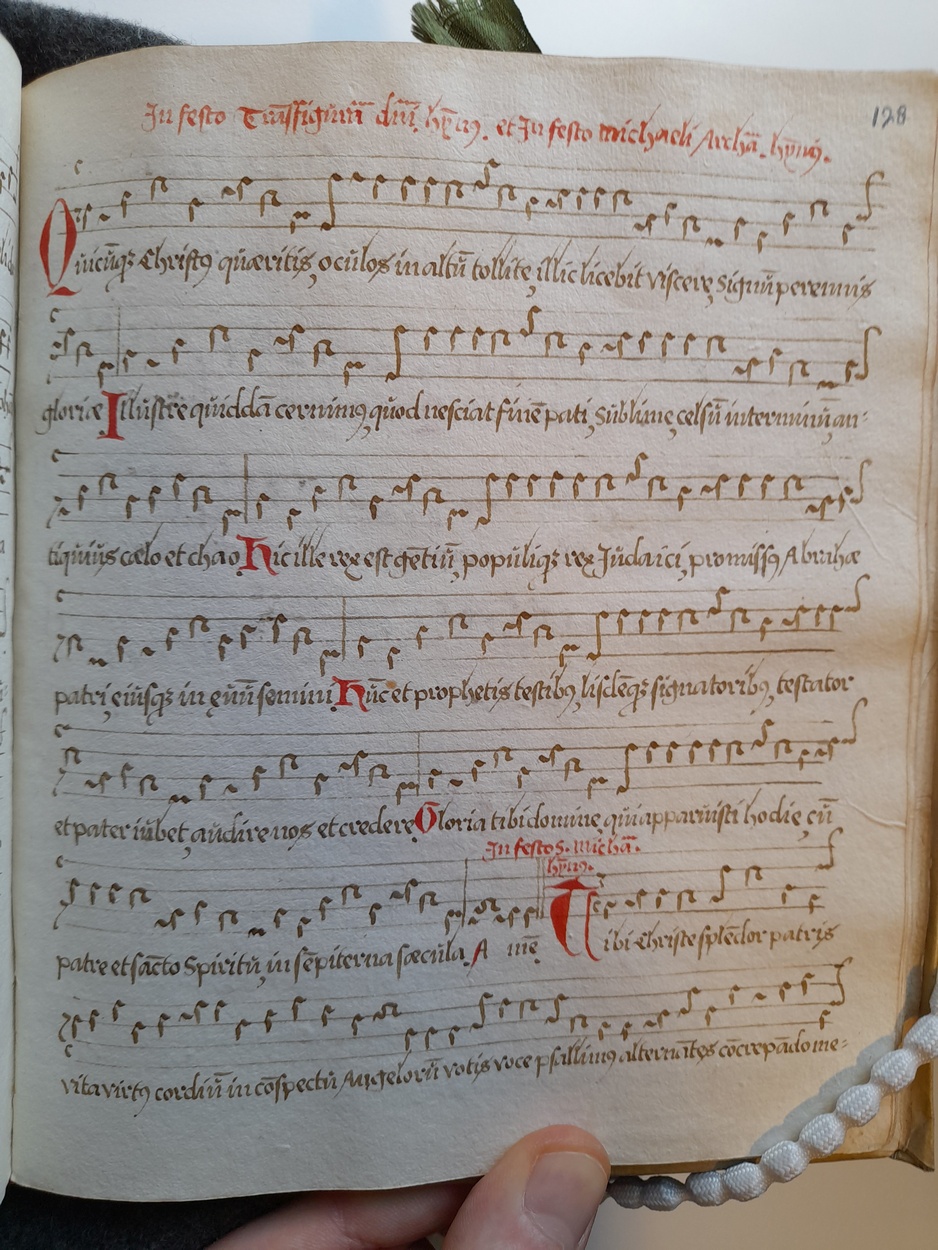 In festo Trāsfigurā dñi hȳnꝰ. et In festo michaeli Archā. hȳnꝰ.
128
Quicūqꝫ Christꝰ quæritis, oculos in altū tollite, illic licebit viscere, signū perennis
gloriæ Illustre quiddā cernimꝰ, quod nesciat finē pati, sublime, celsū interminū, an-
tiquius cælo et chao Hic ille rex est gētiū, populiqꝫ rex Judaici, promissꝰ Abrahæ
patri, eiusqꝫ in ęuū semini Hūc et prophetis testibꝰ, iisdēqꝫ signatoribꝰ, testator
et pater iubet, audire nos et credere, Gloria tibi domine, qui apparuisti hodie, cū
In festo S. Michā.
hȳnꝰ.
patre et sācto Spiritu, in sēpiterna sæcula. A mē Tibi Christe splēdor patris
vita virtꝰ cordiū in cōspectu Angelorū votis voce psallimꝰ alternātes cōcrepādo me-